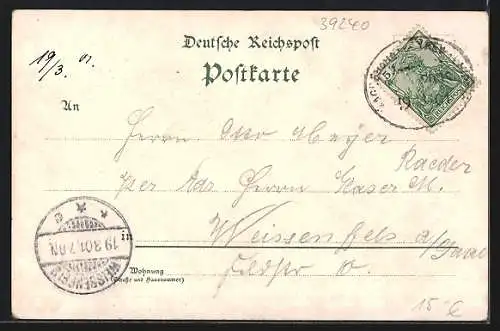 39240
19/3. 01.
Deutsche Reichspost
Postkarte
An
Herrn Otto Meyer
Raeder
per Adr. Herrn Kaser
Weissenfels a/Saale
in
19.3.01.7-8N.
WEISSENFELS
Wohnung
(Straße und Hausnummer)
15 €